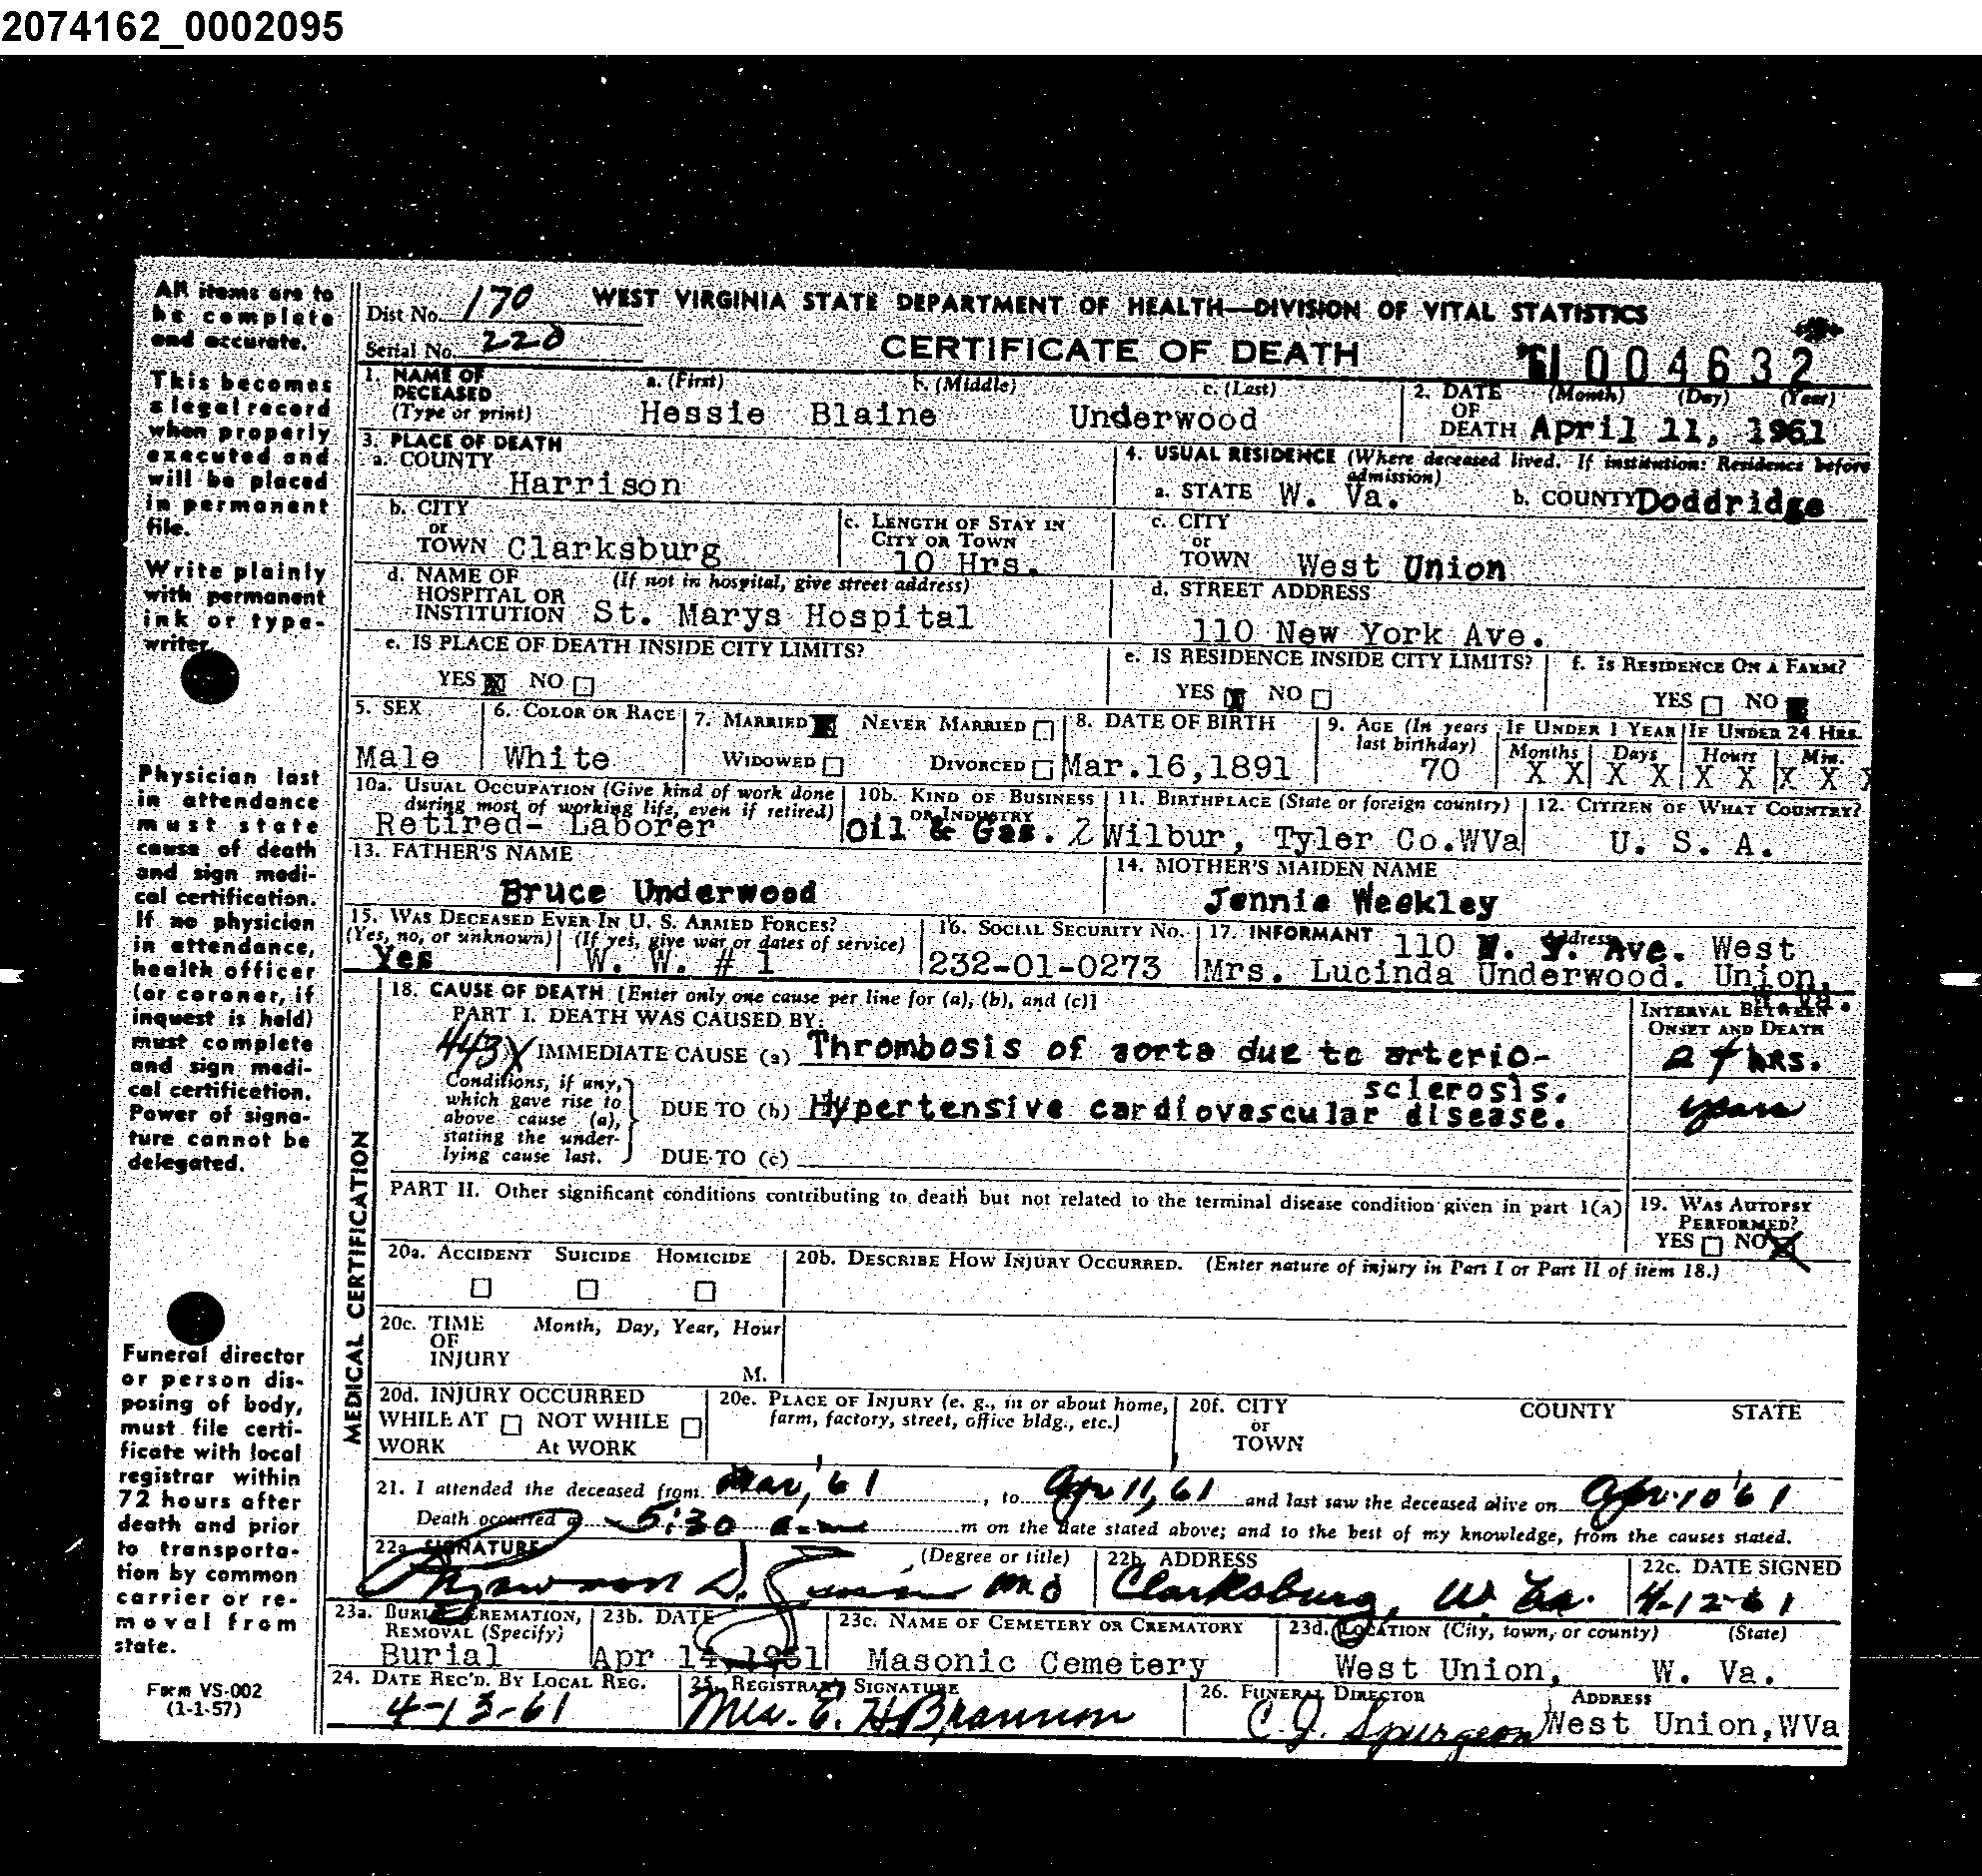 2074162_0002095
All items are to
be complete
and accurate.
This becomes
a legal record
when properly
executed and
will be placed
in permanent
file.
Write plainly
with permanent
ink or type-
writer.
Physician last
in attendance
must state
cause of death
and sign medi-
cal certification.
If no physician
in attendance,
health officer
(or coroner, if
inquest is held)
must complete
and sign medi-
cal certification.
Power of signa-
ture cannot be
delegated.
Funeral director
or person dis-
posing of body,
must file certi-
ficate with local
registrar within
72 hours after
death and prior
to transporta-
tion by common
carrier or re-
moval from
state.
Form VS-002
(1-1-57)
Dist No. 170 WEST VIRGINIA STATE DEPARTMENT OF HEALTH—DIVISION OF VITAL STATISTICS
Serial No. 220 CERTIFICATE OF DEATH 004632
1. NAME OF DECEASED (Type or print) a. (First) b. (Middle) c. (Last)
Hessie Blaine Underwood
2. DATE OF DEATH (Month) (Day) (Year)
April 11, 1961
3. PLACE OF DEATH
a. COUNTY Harrison
4. USUAL RESIDENCE (Where deceased lived. If institution: Residence before admission)
a. STATE W. Va. b. COUNTY Doddridge
b. CITY or TOWN Clarksburg
c. LENGTH OF STAY IN CITY OR TOWN 10 Hrs.
c. CITY or TOWN West Union
d. NAME OF HOSPITAL OR INSTITUTION (If not in hospital, give street address)
St. Marys Hospital
d. STREET ADDRESS
110 New York Ave.
e. IS PLACE OF DEATH INSIDE CITY LIMITS?
YES NO
e. IS RESIDENCE INSIDE CITY LIMITS?
YES NO
f. IS RESIDENCE ON A FARM?
YES NO
5. SEX Male
6. COLOR OR RACE White
7. MARRIED NEVER MARRIED
WIDOWED DIVORCED
8. DATE OF BIRTH Mar.16,1891
9. AGE (In years last birthday) 70
IF UNDER 1 YEAR Months Days X X X X
IF UNDER 24 HRS. Hours Min. X X X X X
10a. USUAL OCCUPATION (Give kind of work done during most of working life, even if retired)
Retired- Laborer
10b. KIND OF BUSINESS OR INDUSTRY
Oil & Gas. 2
11. BIRTHPLACE (State or foreign country)
Wilbur, Tyler Co.WVa
12. CITIZEN OF WHAT COUNTRY?
U. S. A.
13. FATHER'S NAME
Bruce Underwood
14. MOTHER'S MAIDEN NAME
Jennie Weekley
15. WAS DECEASED EVER IN U. S. ARMED FORCES?
(Yes, no, or unknown) (If yes, give war or dates of service)
Yes W. W. # 1
16. SOCIAL SECURITY No.
232-01-0273
17. INFORMANT Address
110 N. Y. Ave. West
Mrs. Lucinda Underwood. Union,
W. Va.
18. CAUSE OF DEATH [Enter only one cause per line for (a), (b), and (c)]
PART I. DEATH WAS CAUSED BY:
INTERVAL BETWEEN ONSET AND DEATH
443X IMMEDIATE CAUSE (a) Thrombosis of aorta due to arterio-
sclerosis.
hrs.
Conditions, if any, which gave rise to above cause (a), stating the under-lying cause last.
DUE TO (b) Hypertensive cardiovascular disease.
years
DUE TO (c)
PART II. Other significant conditions contributing to death but not related to the terminal disease condition given in part 1(a)
19. WAS AUTOPSY PERFORMED?
YES NO
20a. ACCIDENT SUICIDE HOMICIDE
20b. DESCRIBE HOW INJURY OCCURRED. (Enter nature of injury in Part I or Part II of item 18.)
20c. TIME OF INJURY Month, Day, Year, Hour
M.
20d. INJURY OCCURRED
WHILE AT WORK NOT WHILE At WORK
20e. PLACE OF INJURY (e. g., in or about home, farm, factory, street, office bldg., etc.)
20f. CITY or TOWN COUNTY STATE
21. I attended the deceased from Mar, '61, to Apr 11, 61 and last saw the deceased alive on Apr. 10 '61
Death occurred at 5:30 a.m m on the date stated above; and to the best of my knowledge, from the causes stated.
22a. SIGNATURE (Degree or title)
MD
22b. ADDRESS
Clarksburg, W. Va.
22c. DATE SIGNED
4-12-61
23a. BURIAL, CREMATION, REMOVAL (Specify)
Burial
23b. DATE
Apr 14,1961
23c. NAME OF CEMETERY OR CREMATORY
Masonic Cemetery
23d. LOCATION (City, town, or county) (State)
West Union, W. Va.
24. DATE REC'D. BY LOCAL REG.
4-13-61
25. REGISTRAR'S SIGNATURE
Mrs. E. H Brannon
26. FUNERAL DIRECTOR ADDRESS
C J. Spurgeon West Union,WVa
MEDICAL CERTIFICATION